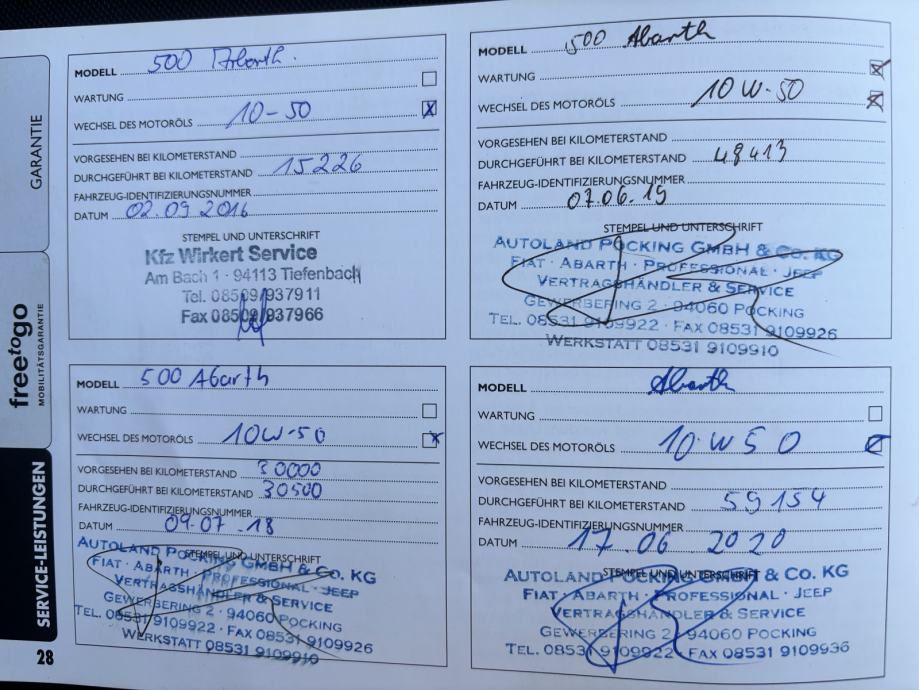 GARANTIE
freetogo
MOBILITÄTSGARANTIE
SERVICE-LEISTUNGEN
28
MODELL 500 Abarth.
WARTUNG
WECHSEL DES MOTORÖLS 10-50 X
VORGESEHEN BEI KILOMETERSTAND
DURCHGEFÜHRT BEI KILOMETERSTAND 15226
FAHRZEUG-IDENTIFIZIERUNGSNUMMER
DATUM 02.09 2016
STEMPEL UND UNTERSCHRIFT
Kfz Wirkert Service
Am Bach 1 · 94113 Tiefenbach
Tel. 08509/937911
Fax 08509/937966
MODELL 500 Abarth
WARTUNG X
WECHSEL DES MOTORÖLS 10W-50 X
VORGESEHEN BEI KILOMETERSTAND
DURCHGEFÜHRT BEI KILOMETERSTAND 48413
FAHRZEUG-IDENTIFIZIERUNGSNUMMER
DATUM 07.06.19
STEMPEL UND UNTERSCHRIFT
AUTOLAND POCKING GMBH & CO. KG
FIAT · ABARTH · PROFESSIONAL · JEEP
VERTRAGSHÄNDLER & SERVICE
GEWERBERING 2 · 94060 POCKING
TEL. 08531 9109922 · FAX 08531 9109926
WERKSTATT 08531 9109910
MODELL 500 Abarth
WARTUNG
WECHSEL DES MOTORÖLS 10W-50 X
VORGESEHEN BEI KILOMETERSTAND 30000
DURCHGEFÜHRT BEI KILOMETERSTAND 30500
FAHRZEUG-IDENTIFIZIERUNGSNUMMER
DATUM 09.07.18
STEMPEL UND UNTERSCHRIFT
AUTOLAND POCKING GMBH & CO. KG
FIAT · ABARTH · PROFESSIONAL · JEEP
VERTRAGSHÄNDLER & SERVICE
GEWERBERING 2 · 94060 POCKING
TEL. 08531 9109922 · FAX 08531 9109926
WERKSTATT 08531 9109910
MODELL Abarth
WARTUNG
WECHSEL DES MOTORÖLS 10 W 50
VORGESEHEN BEI KILOMETERSTAND
DURCHGEFÜHRT BEI KILOMETERSTAND 59154
FAHRZEUG-IDENTIFIZIERUNGSNUMMER
DATUM 17.06 2020
STEMPEL UND UNTERSCHRIFT
AUTOLAND POCKING GMBH & CO. KG
FIAT · ABARTH · PROFESSIONAL · JEEP
VERTRAGSHÄNDLER & SERVICE
GEWERBERING 2 · 94060 POCKING
TEL. 08531 9109922 · FAX 08531 9109936